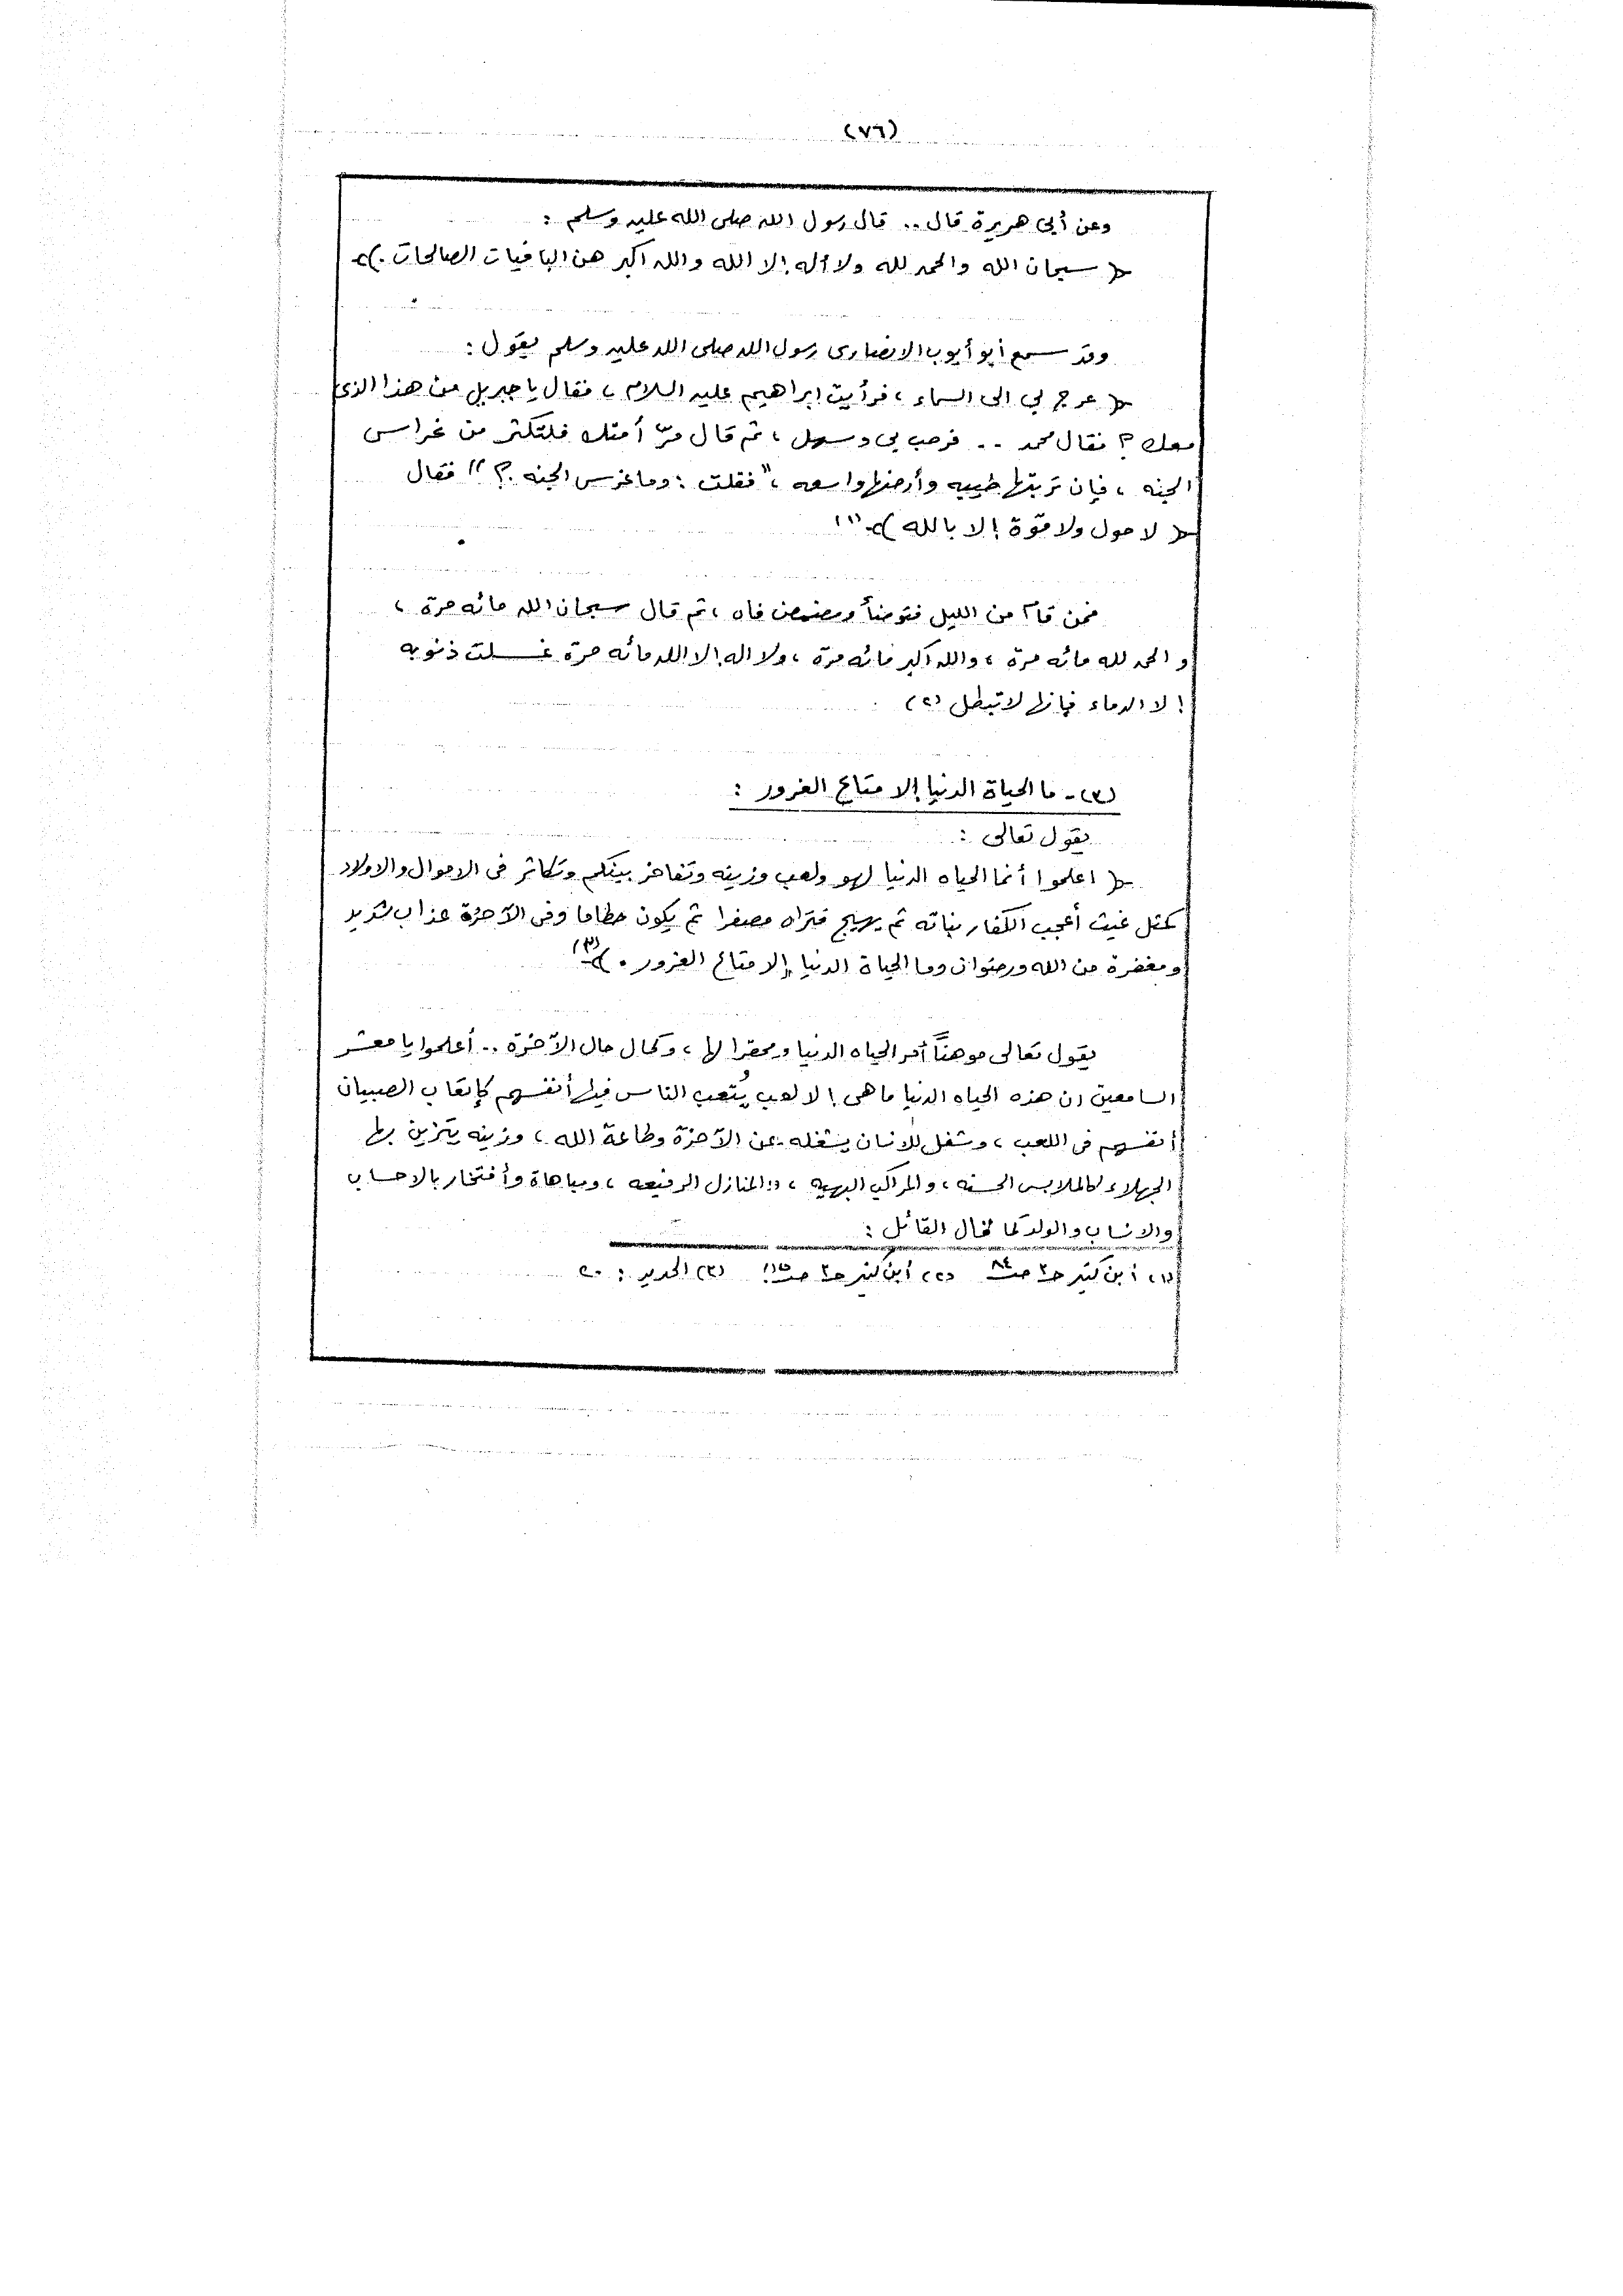 (٧٦)
وعن أبى هريرة قال .. قال رسول الله صلى الله عليه وسلم :
﴿ سبحان الله والحمد لله ولا أله إلا الله والله اكبر هن الباقيات الصالحات . ﴾
وقد سمع أبو أيوب الانصارى رسول الله صلى الله عليه وسلم يقول :
﴿ عرج بي الى السماء ، فرأيت ابراهيم عليه السلام ، فقال يا جبريل من هذا الذى
معك ؟ فقال محمد .. فرحب بي وسهل ، ثم قال مرّ أمتك فلتكثر من غراس
الجنه ، فإن تربتها طيبه وأرضها واسعه ، " فقلت : وما غرس الجنه . ؟ " فقال
﴿ لا حول ولا قوة إلا بالله ﴾ (١)
فمن قام من الليل فتوضأ ومضمض فاه ، ثم قال سبحان الله مائه مرة ،
و الحمد لله مائه مرة ، والله اكبر مائه مرة ، ولا اله إلا الله مائه مرة غسلت ذنوبه
إلا الدماء فإنها لا تبطل (٢)
(٣) - ما الحياة الدنيا إلا متاع الغرور :
يقول تعالى :
﴿ اعلموا أنما الحياه الدنيا لهو ولعب وزينه وتفاخر بينكم وتكاثر فى الاموال والاولاد
كمثل غيث أعجب الكفار نباته ثم يهيج فتراه مصفرا ثم يكون حطاما وفى الآخرة عذاب شديد
ومغفرة من الله ورضوان وما الحياة الدنيا إلا متاع الغرور . ﴾ (٣)
يقول تعالى موهناً أمر الحياه الدنيا ومحقرا لها ، وكمال حال الآخرة .. أعلموا يا معشر
السامعين ان هذه الحياه الدنيا ما هى إلا لعب يُتعب الناس فيها أنفسهم كإتعاب الصبيان
أنفسهم فى اللعب ، وشغل للانسان يشغله عن الآخرة وطاعة الله ، وزينه يتزين بها
الجهلاء كالملابس الحسنه ، والمراكب البهيه ، والمنازل الرفيعه ، ومباهاة وأفتخار بالاحساب
والانساب والولد كما قال القائل :
(١) أبن كثير حـ٣ صـ٨٤ (٢) أبن كثير حـ٣ (٣) الحديد : ٢٠